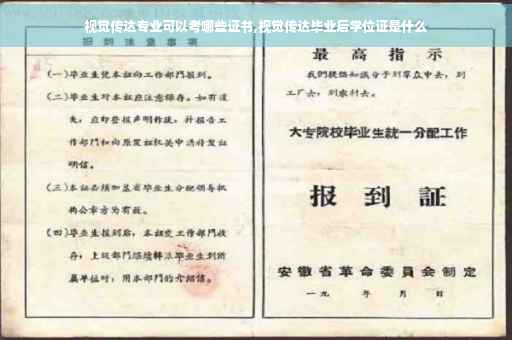 视觉传达专业可以考哪些证书,视觉传达毕业后学位证是什么
报到注意事项
(一)毕业生凭本证向工作部门报到。
(二)毕业生对本证应注意保存。如有遗
失,应即登报声明作废,并报告工
作部门和向原发证机关申请补发证
明信。
(三)本证必须加盖省毕业生分配领导机
构公章方为有效。
(四)毕业生报到后,本证交工作部门收
存;上级部门继续转派毕业生到所
属单位时,用本部门的介绍信。
最高指示
我们提倡知识分子到群众中去,到
工厂去,到农村去。
大专院校毕业生統一分配工作
报到証
安徽省革命委員会制定
一九 年 月 日